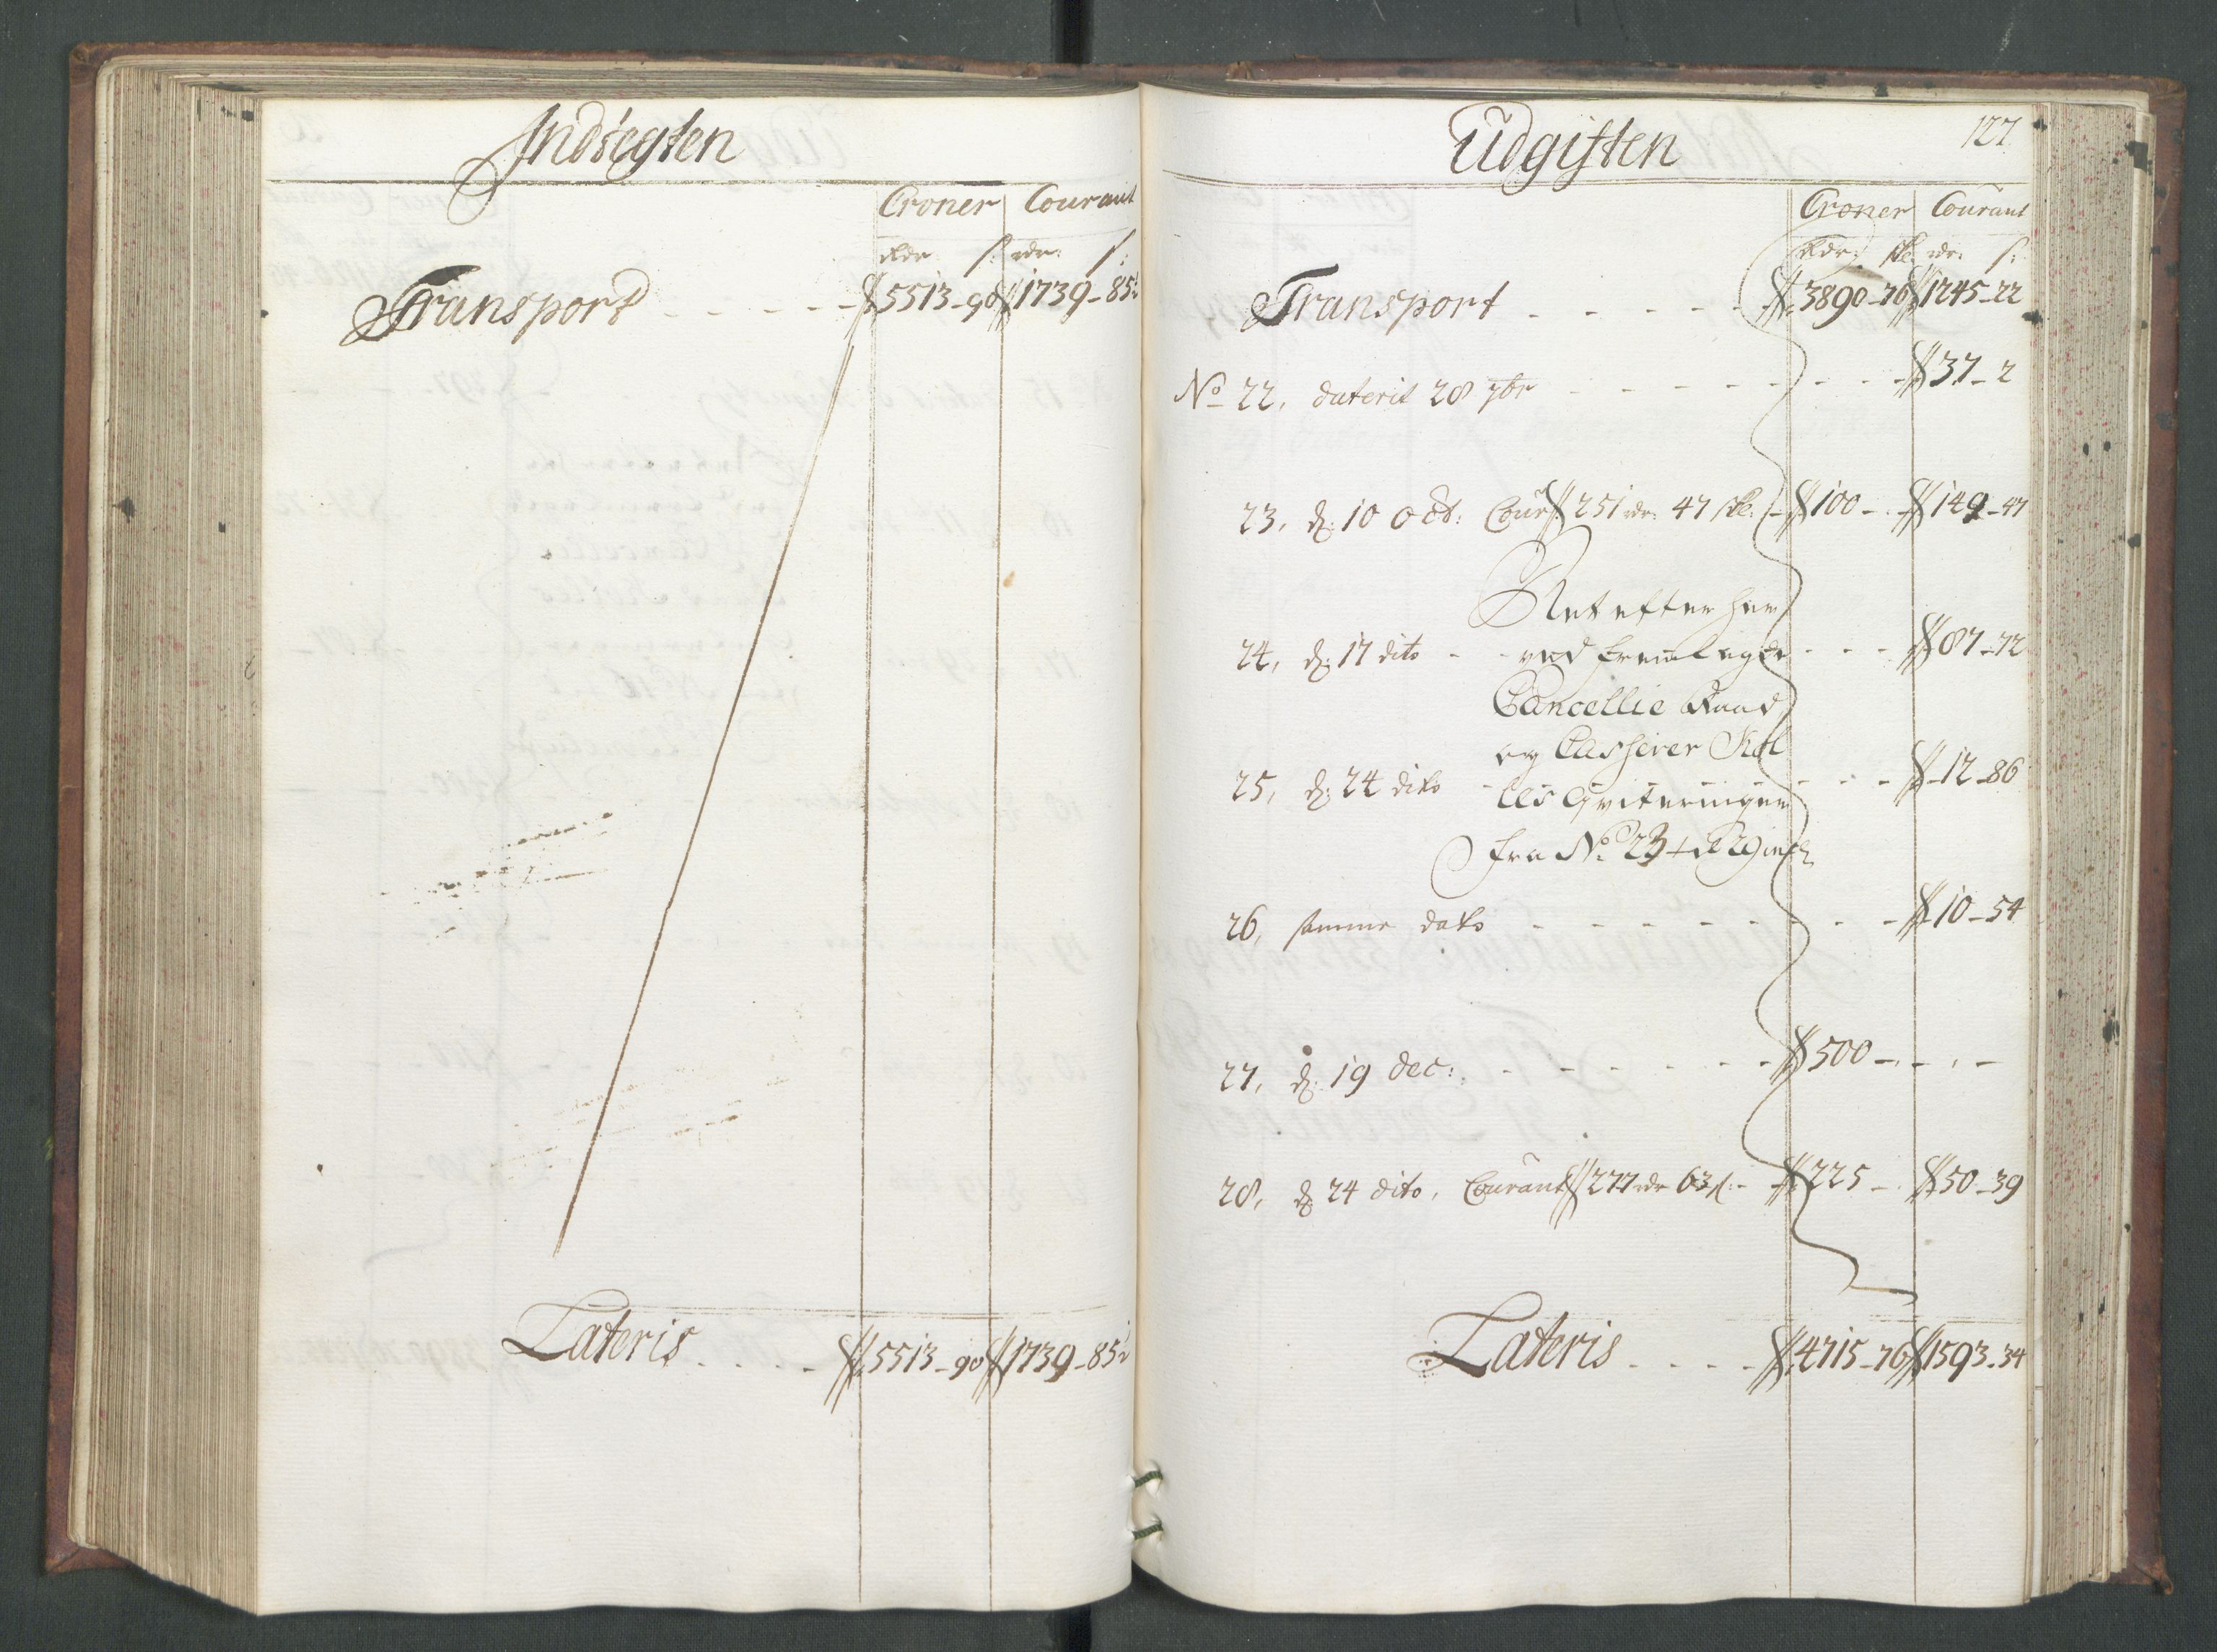 Indtegten
Croner Courant
Rdr ß rdr: ß:
Transport - - - - - 5513 - 90 1739 - 85½
Lateris - - - - 5513 - 90 1739 - 85½
Udgiften
127
Croner Courant
Rdr: ſkl: rdr: ß:
Transport - - - - - 3890 - 76 1245 - 22
No 22, daterit 28 7br - - - - - - - 37 - 2
23, d: 10 Oct: Cour 251 rdr: 47 ſkl: - 100 - - 149 - 47
Ret efter her
24, d: 17 dito - - ved fremlagde - - - 87 - 72
Cancellie Raad
og Casserer Kol
25, d: 24 dito - - les Qviteringer - - - 12 - 86
fra No 23 til 29 incl:
26, samme dato - - - - - - - 10 - 54
27, d: 19 dec: - - - - - - 500 - - - -
28, d: 24 dito, Courant 277 rdr 63 ß: - 225 - 50 - 39
Lateris - - - - 4715 - 76 1593 - 34